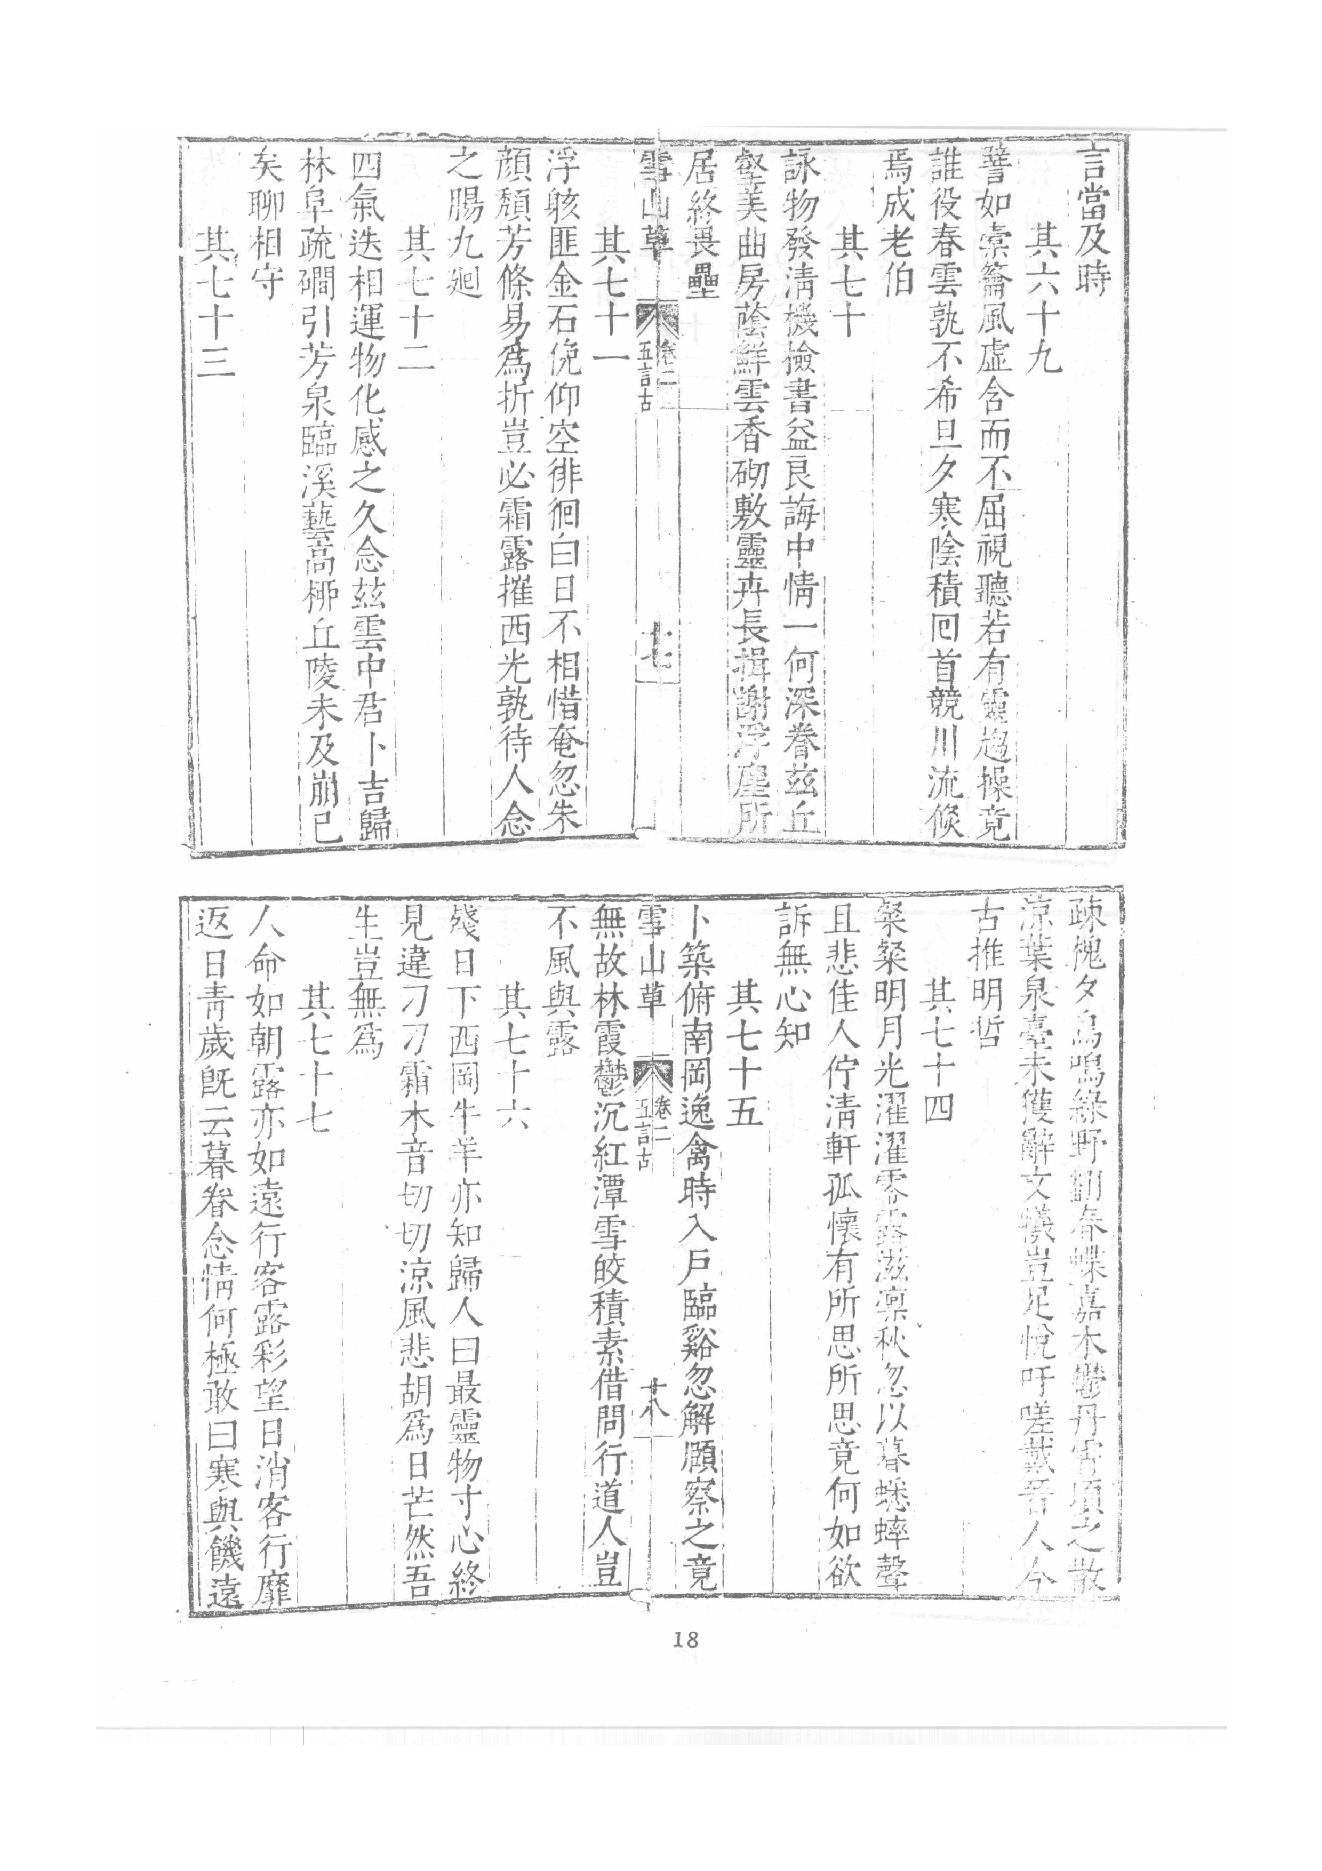 言當及時
其六十九
譬如橐籥風虛含而不屈視聽若有靈趨操竟
誰役春雲孰不希旦夕寒陰積回首競川流倐
焉成老伯
其七十
詠物發清機撿書益良誨中情一何深眷兹丘
壑美曲房蔭鮮雲香砌敷靈卉長揖謝浮塵所
居終畏壘
雪山草 卷二 五言古 十七
其七十一
浮骸匪金石俛仰空徘徊白日不相惜奄忽朱
顔頽芳條易爲折豈必霜露摧西光孰待人念
之腸九廻
其七十二
四氣迭相運物化感之久念兹雲中君卜吉歸
林阜疏磵引芳泉臨溪藝高栁丘陵未及崩已
矣聊相守
其七十三
疎槐夕鳥鳴綠野 春蝶嘉木鬱丹霄頃之散
凉葉泉臺未獲辭文犧豈足恱吁嗟戴 人今
古推明哲
其七十四
粲粲明月光濯濯零露滋凛秋忽以暮蟋蟀聲
且悲佳人佇清軒孤懷有所思所思竟何如欲
訴無心知
其七十五
卜築俯南岡逸禽時入戸臨谿忽解頤察之竟
雪山草 卷二 五言古 十八
無故林霞鬱沉紅潭雪皎積素借問行道人豈
不風與露
其七十六
殘日下西岡牛羊亦知歸人曰最靈物寸心終
見違刁刁霜木音切切凉風悲胡爲日芒然吾
生豈無爲
其七十七
人命如朝露亦如遠行客露彩望日消客行靡
返日靑歲旣云暮眷念情何極敢曰寒與饑遠
18